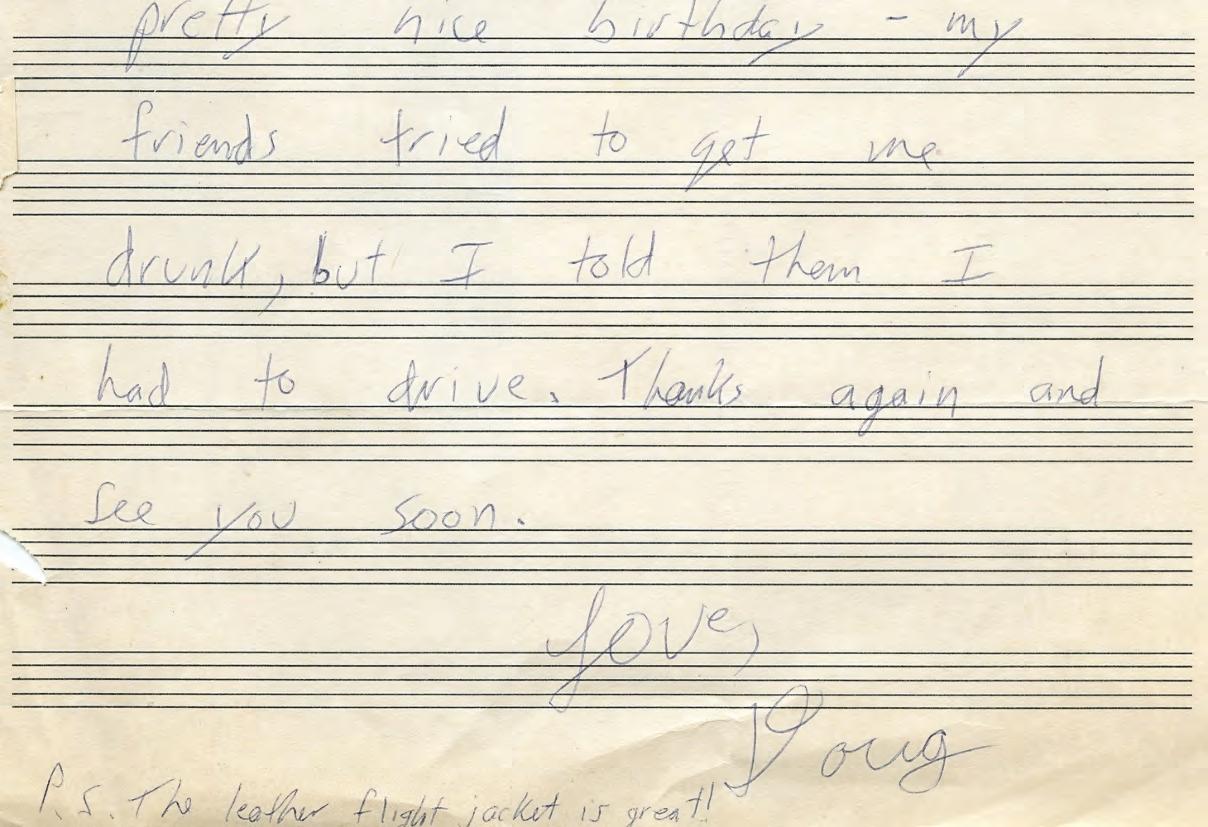 pretty nice birthday - my
friends tried to get me
drunk, but I told them I
had to drive. Thanks again and
see you soon.
Love,
Doug
P.S. The leather flight jacket is great!